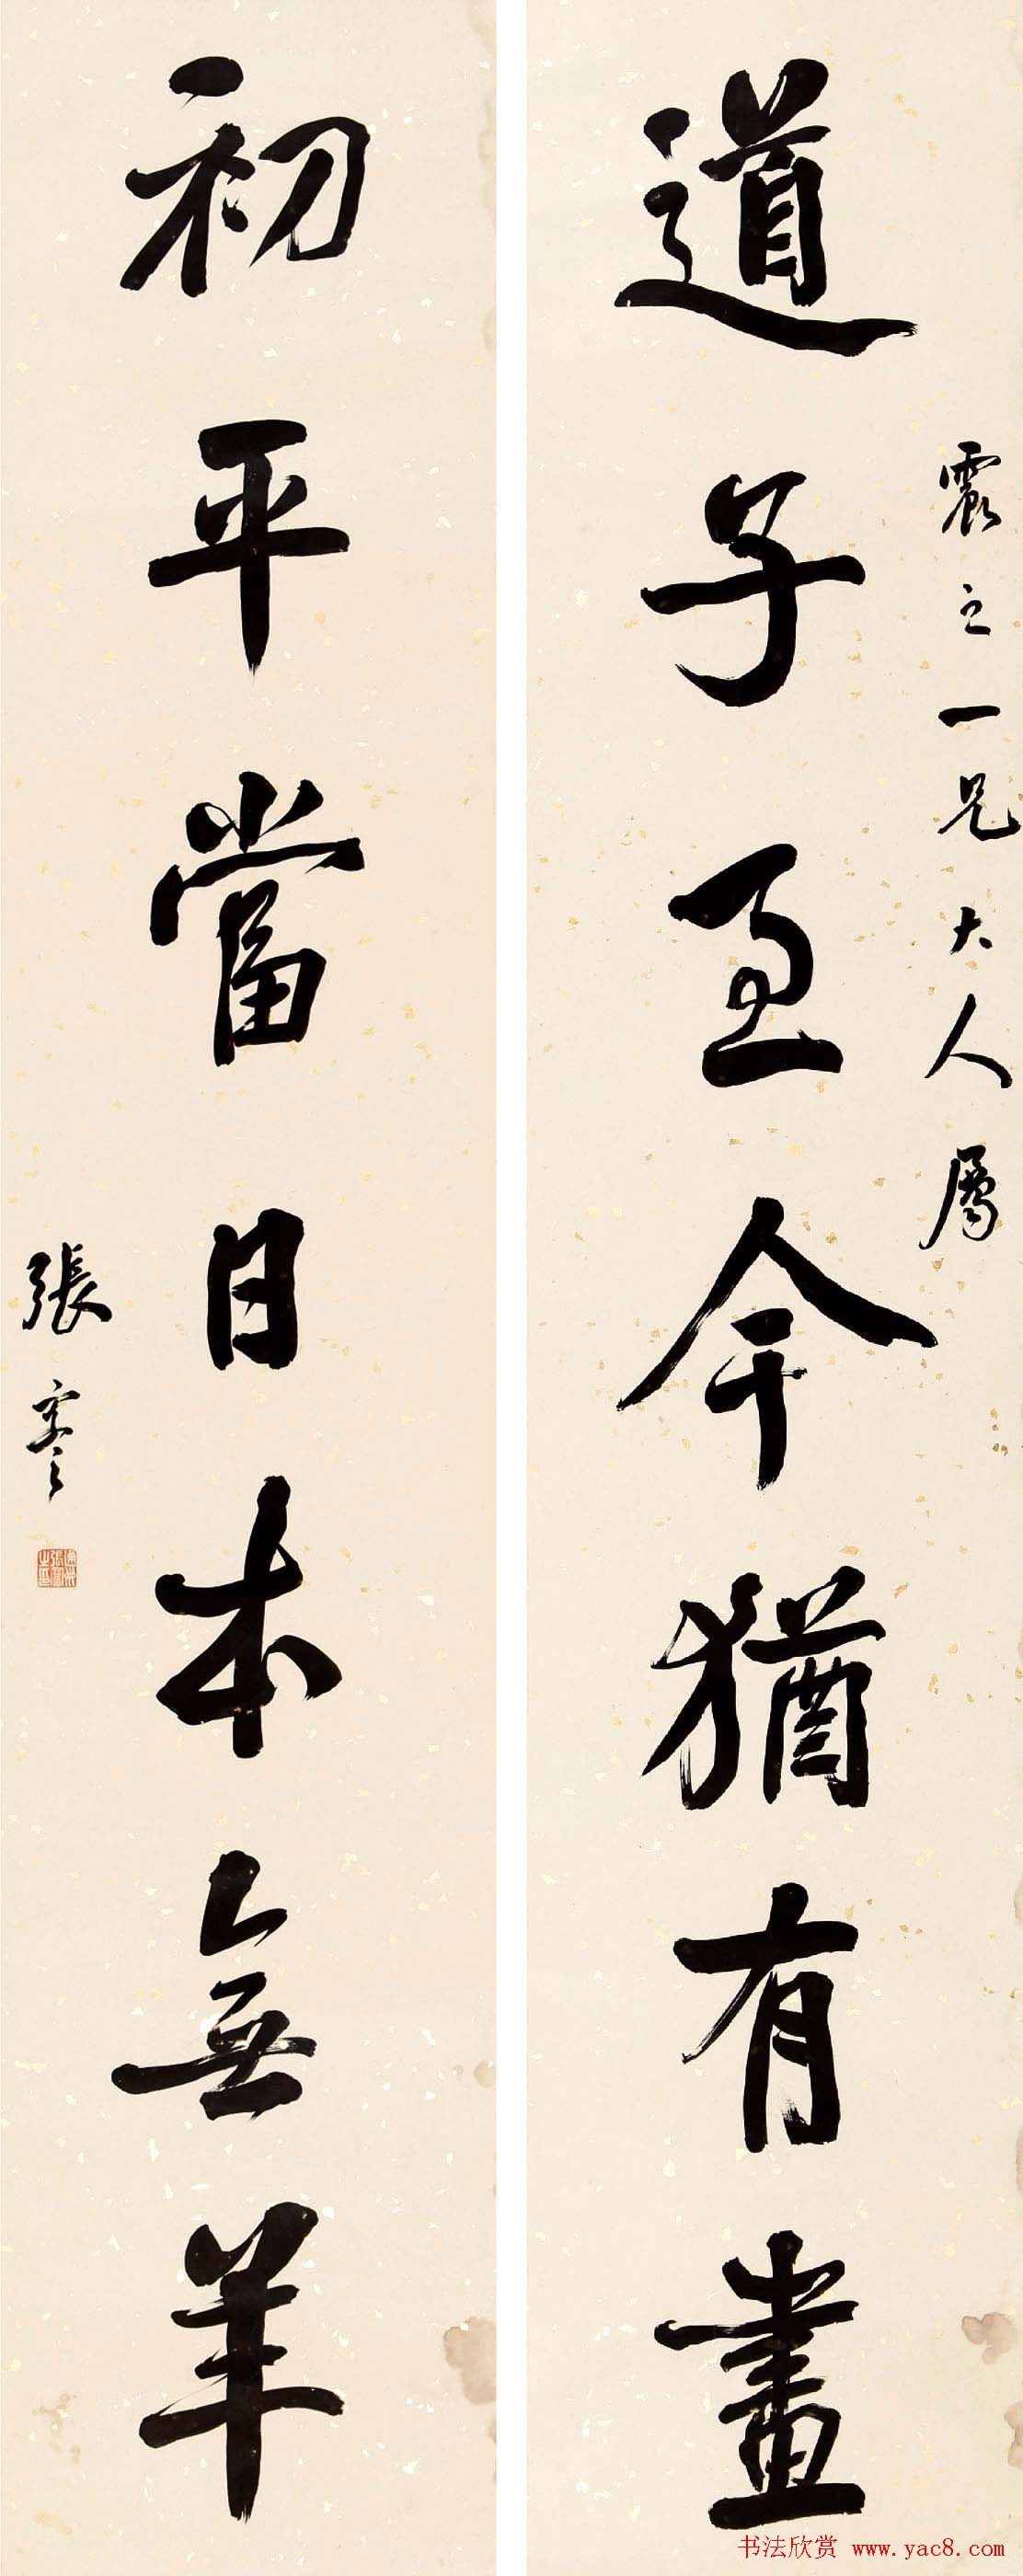 震之一兄大人屬
道子至今猶有畫
初平當日本無羊
張謇
書法欣赏 www.yac8.com